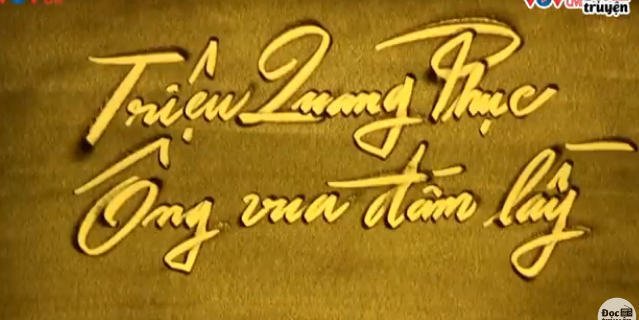 VOV LIVE
truyện
Triệu Quang Phục
Ông vua đầm lầy
Đọc